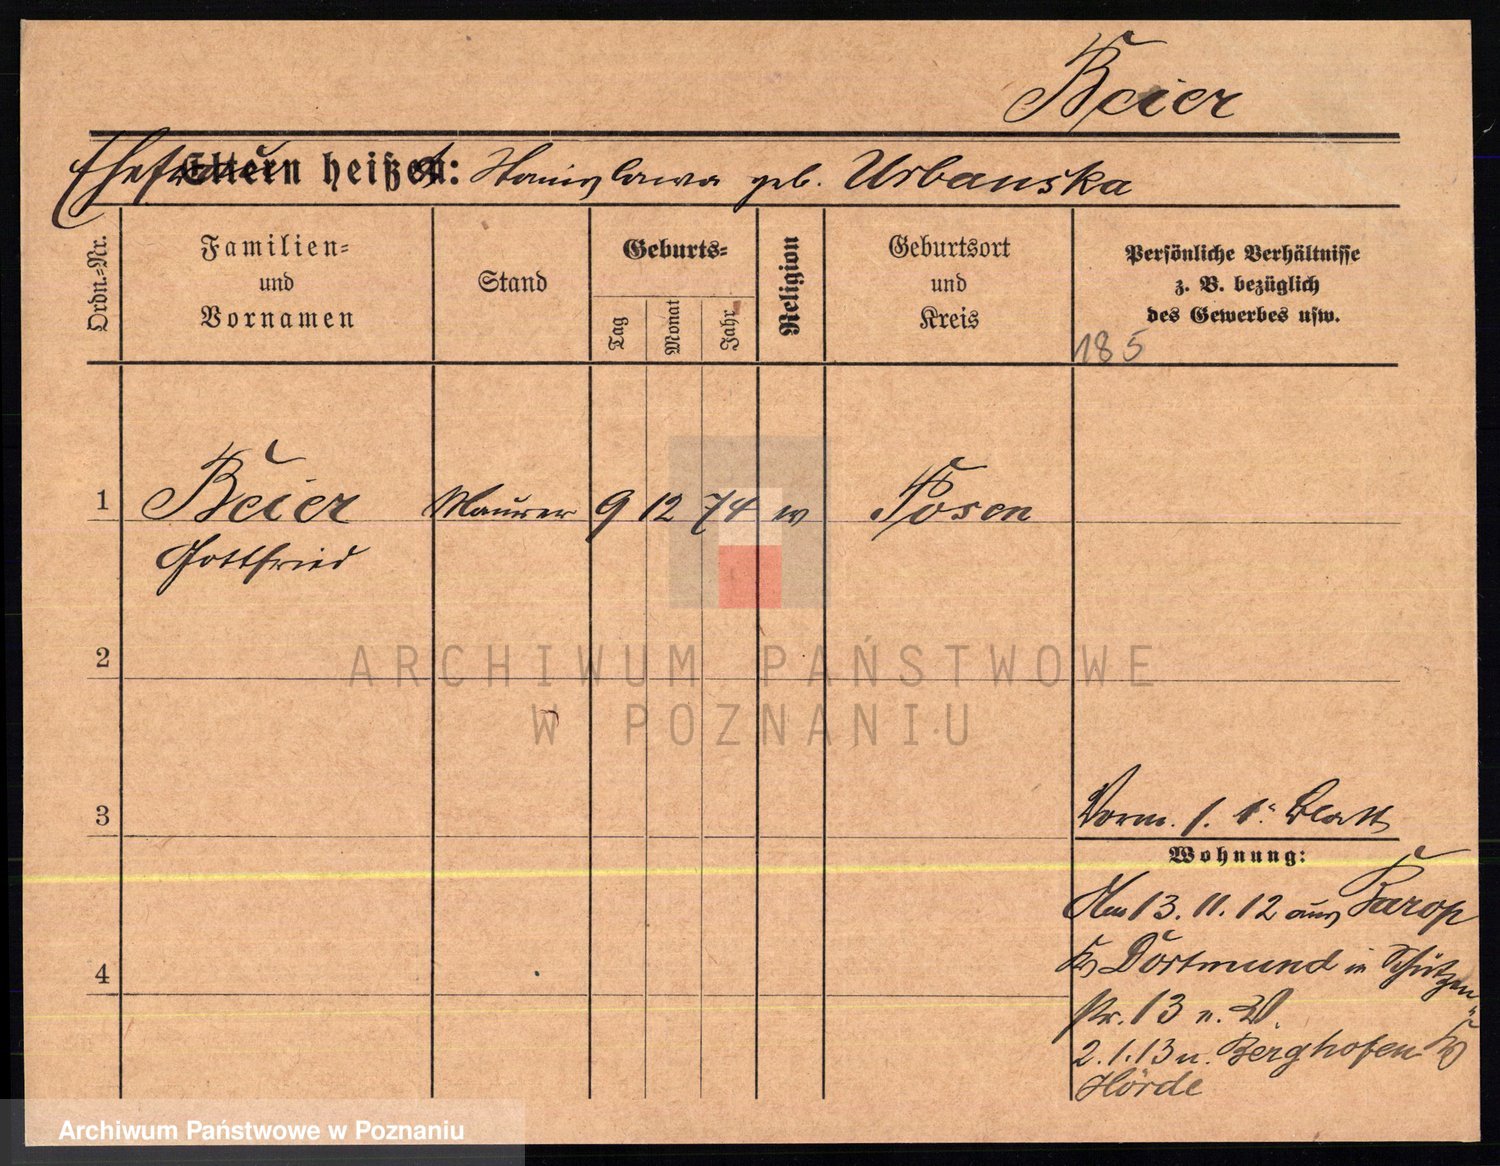 Beier
Ehefrau Eltern heißen: Stanislawa geb. Urbanska
Ordn.=Nr.
Familien=
und
Vornamen
Stand
Geburts=
Tag
Monat
Jahr
Religion
Geburtsort
und
Kreis
Persönliche Verhältnisse
z. B. bezüglich
des Gewerbes usw.
185
1 Beier Maurer 9 12 74 Posen
Gottfried
2
ARCHIWUM PAŃSTWOWE
W POZNANIU
3
Vorm. s. 1. Blatt
Wohnung:
Am 13.11.12 aus Barop
Kr Dortmund in Schützen=
str. 13 n. W.
4
2.1.13 n. Berghofen Kr
Hörde
Archiwum Państwowe w Poznaniu